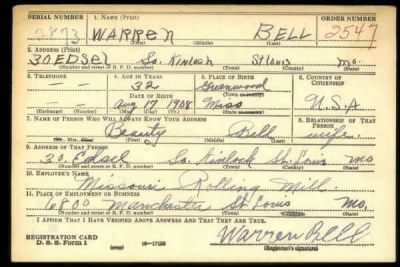 SERIAL NUMBER 1. NAME (Print) ORDER NUMBER
2873 WARREN BELL 2547
(First) (Middle) (Last)
2. ADDRESS (Print)
30 EDSEL So. Kinloch St Louis Mo.
(Number and street or R. F. D. number) (Town) (County) (State)
3. TELEPHONE 4. AGE IN YEARS 5. PLACE OF BIRTH 6. COUNTRY OF CITIZENSHIP
32 Greenwood
DATE OF BIRTH (Town or county)
Aug 17 1908 Miss U.S.A
(Exchange) (Number) (Mo.) (Day) (Yr.) (State or country)
7. NAME OF PERSON WHO WILL ALWAYS KNOW YOUR ADDRESS 8. RELATIONSHIP OF THAT PERSON
Beauty Bell wife
(Mr., Mrs., Miss) (First) (Middle) (Last)
9. ADDRESS OF THAT PERSON
30 Edsel So. Kinlock St. Louis Mo
(Number and street or R. F. D. number) (Town) (County) (State)
10. EMPLOYER'S NAME
Missouri Rolling Mill
11. PLACE OF EMPLOYMENT OR BUSINESS
6800 Manchester St Louis Mo.
(Number and street or R. F. D. number) (Town) (County) (State)
I AFFIRM THAT I HAVE VERIFIED ABOVE ANSWERS AND THAT THEY ARE TRUE.
REGISTRATION CARD
D. S. S. Form 1 Warren Bell
(Registrant's signature)